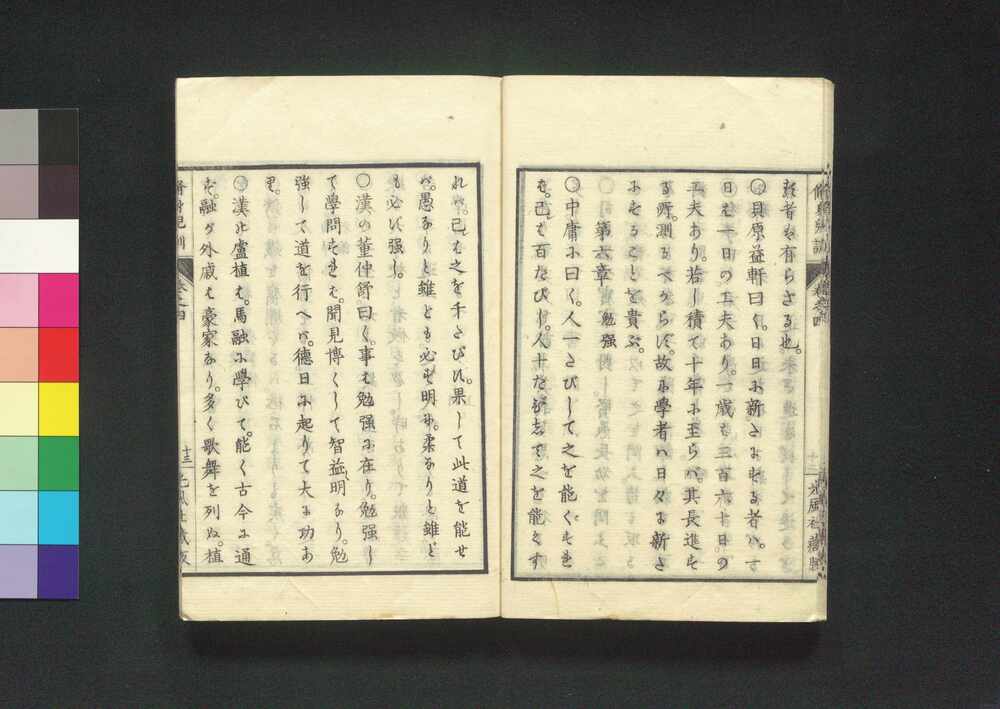 敖者は有らざる也。
○貝原益軒曰く。日日に新にする者は。一
日に一日の工夫あり。一歳は三百六十日の
工夫あり。若し積て十年に至らば。其長進す
る所。測るべからず。故に學者ハ日々に新に
することを貴ぶ。
第六章 勉强
○中庸に曰く。人一たびして之を能くすれ
ば。己は百たびし。人十たびして之を能くす
れば。己は之を千たびす。果して此道を能せ
ば。愚なりと雖とも必ず明に。柔なりと雖ど
も必ず强し。
○漢の董仲舒曰く。事は勉强に在り。勉强し
て學問すれば。聞見博くして智益明なり。勉
强して道を行へば。德日に起りて大に功あ
り。
○漢の盧植は。馬融に學びて。能く古今に通
ず。融が外戚は豪家なり。多く歌舞を列ぬ。植
十三